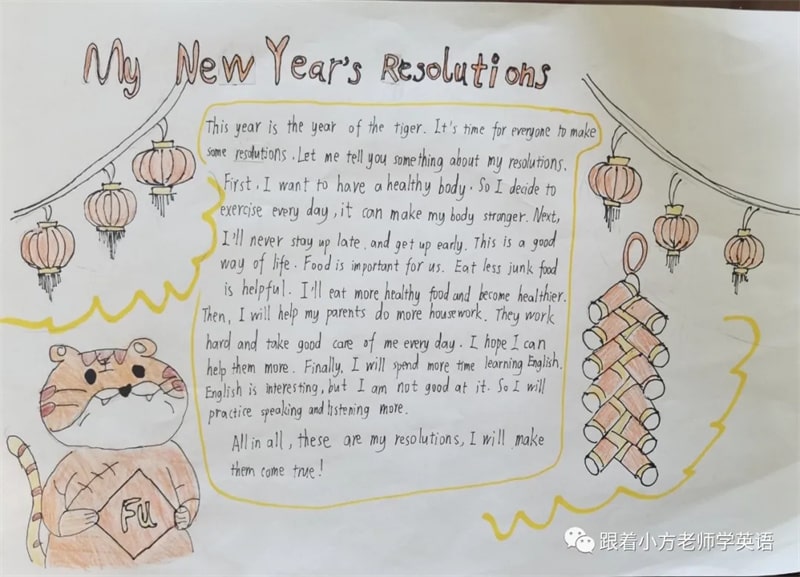 My New Year's Resolutions
This year is the year of the tiger. It's time for everyone to make
some resolutions. Let me tell you something about my resolutions.
First, I want to have a healthy body. So I decide to
exercise every day, it can make my body stronger. Next,
I'll never stay up late. and get up early. This is a good
way of life. Food is important for us. Eat less junk food
is helpful. I'll eat more healthy food and become healthier.
Then, I will help my parents do more housework. They work
hard and take good care of me every day. I hope I can
help them more. Finally, I will spend more time learning English.
English is interesting, but I am not good at it. So I will
practice speaking and listening more.
All in all, these are my resolutions, I will make
them come true!
Fu
跟着小方老师学英语